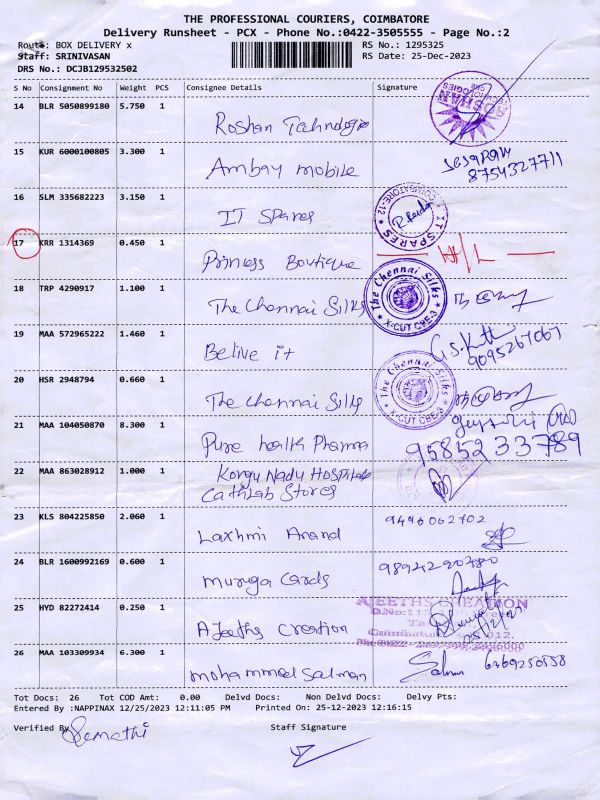 THE PROFESSIONAL COURIERS, COIMBATORE
Delivery Runsheet - PCX - Phone No.:0422-3505555 - Page No.:2
Route: BOX DELIVERY x RS No.: 1295325
Staff: SRINIVASAN RS Date: 25-Dec-2023
DRS No.: DCJB129532502
S No Consignment No Weight PCS Consignee Details Signature
14 BLR 5050899180 5.750 1
Roshan Technologie
15 KUR 6000100805 3.300 1
Ambay mobile
8754327711
16 SLM 335682223 3.150 1
IT SPares
COIMBATORE-12 IT SPARES
17 KRR 1314369 0.450 1
Princess Boutique
18 TRP 4290917 1.100 1
The Chennai Silks
The Chennai Silks X-CUT CBE-3
19 MAA 572965222 1.460 1
Belive it
9095267067
20 HSR 2948794 0.660 1
The Chennai Silks
The Chennai Silks X-CUT CBE-3
21 MAA 104050870 8.300 1
Pure health Pharma
9585233789
22 MAA 863028912 1.000 1
Kongu Nadu Hospitals
Cathlab Stores
23 KLS 804225850 2.060 1
9496062702
Laxhmi Anand
24 BLR 1600992169 0.600 1
Muruga Cards
25 HYD 82272414 0.250 1
AJEETHS CREATION
AJeeths Creation
26 MAA 103309934 6.300 1
mohammed Salman
Salman 6369250558
Tot Docs: 26 Tot COD Amt: 0.00 Delvd Docs: Non Delvd Docs: Delvy Pts:
Entered By :NAPPINAX 12/25/2023 12:11:05 PM Printed On: 25-12-2023 12:16:15
Verified By Staff Signature